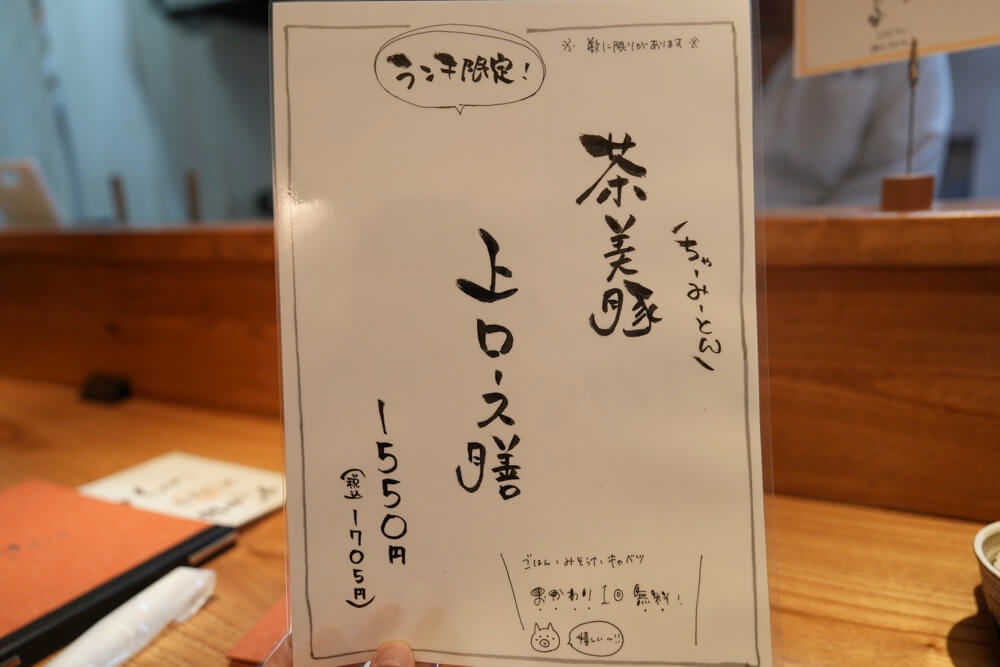 ランチ限定!
※数に限りがあります※
茶美豚
(ちゃーみーとん)
上ロース膳
1550円
(税込1705円)
ごはん、みそ汁、キャベツ
おかわり1回無料!
嬉しい〜!!